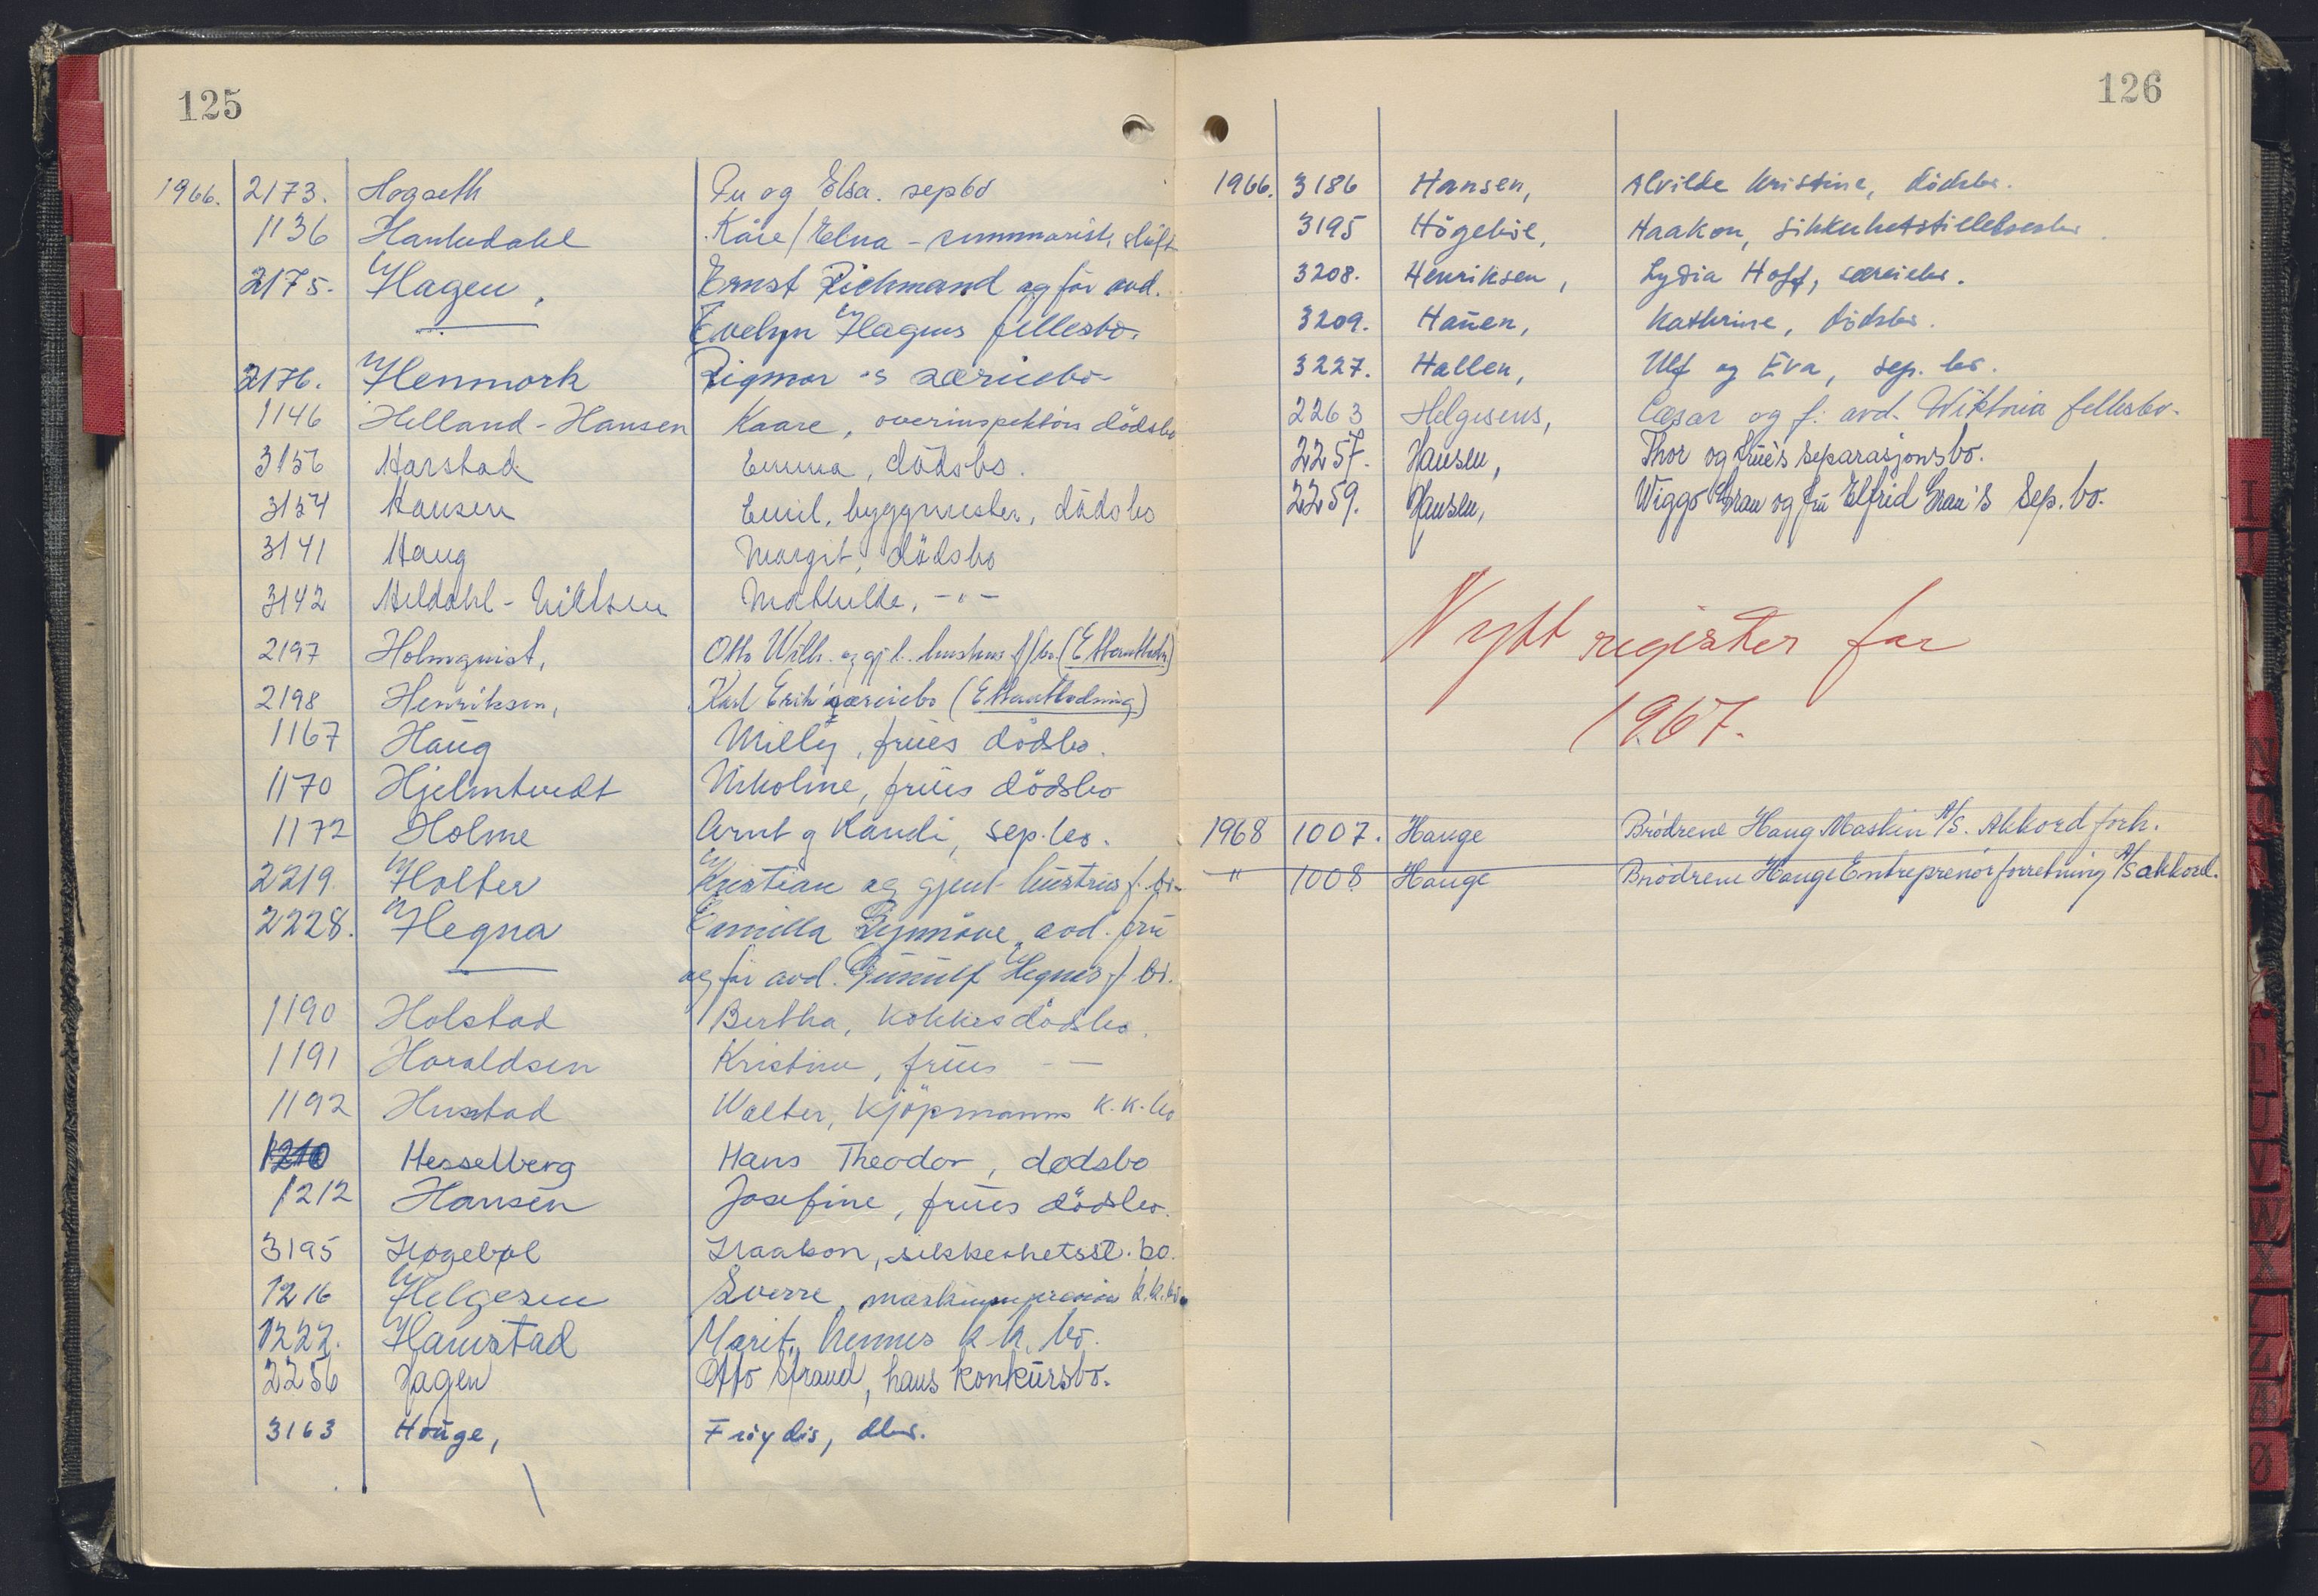 125
1966. 2173. Hogseth og Elsa. sepbo
1136 Kåre / Elna - summarisk skift
2175. Hagen, Ernst Richmand og før avd.
Evelyn Hagens fellesbo.
2176. Henmork Rigmor 's særeiebo
1146 Helland-Hansen Kaare, overinspektørs dödsbo
3156 Harstad Emma, dödsbo.
3134 Hansen Emil, byggmester, dödsbo
3141 Haug Margit, dödsbo
3142 Heldahl-Nilssen Mathilde, -"-
2197 Holmquist, Otto Wilh. og gj.l. hustrus f/bo.
2198 Henriksen, Karl Erik særeiebo (Etterutlodning)
1167 Haug Milly, frues dödsbo.
1170 Hjelmtvedt Nikoline, frues dödsbo
1172 Holme Arnt og Randi, sep.bo.
2219. Holter Kristian og gjenl. hustrus f. bo.
2228. Hegna Camilla Synnöve avd. frü
og før avd. Gunulf Hegnes f. bo.
1190 Holstad Bertha, kokkes dödsbo.
1191 Haraldsen Kristine, frues -
1192 Hustad Walter, kjöpmanns k.k.bo
1210 Hesselberg Hans Theodor, dødsbo
1212 Hansen Josefine, frues dödsbo.
3195 Høgebøl Haakon, sikkerhetsst. bo.
1216 Helgesen Sverre, k.k.bo.
1222. Hamstad Marit, hennes k.k. bo.
2256 Hagen Otto Strand, hans konkürsbo.
3163 Hauge, Fröydis, dbo.
126
1966. 3186 Hansen, Alvilde Kristine, dödsbo.
3195 Högeböl, Haakon, sikkerhetstillelsesbo.
3208. Henriksen, Lydia Hoff, særeiebo.
3209. Hauen, Kathrine, dödsbo.
3227. Hallen, Ulf og Eva, sep. bo.
2263 Helgesens, Cæsar og f. avd. Wiktoria fellesbo.
2257. Hansen, Thor og frue's separasjonsbo.
2259. Hansen, Wiggo Gran og frü Elfrid Gran's sep. bo.
Nytt register for
1967.
1968 1007. Hauge Brödrene Haug Maskin A/S. Akkord forh.
" 1008 Hauge Brödrene Hauge Entreprenör forretning A/S akkord.
I
N
O
T
U
V
W
X
Y
Z
Æ
Ø